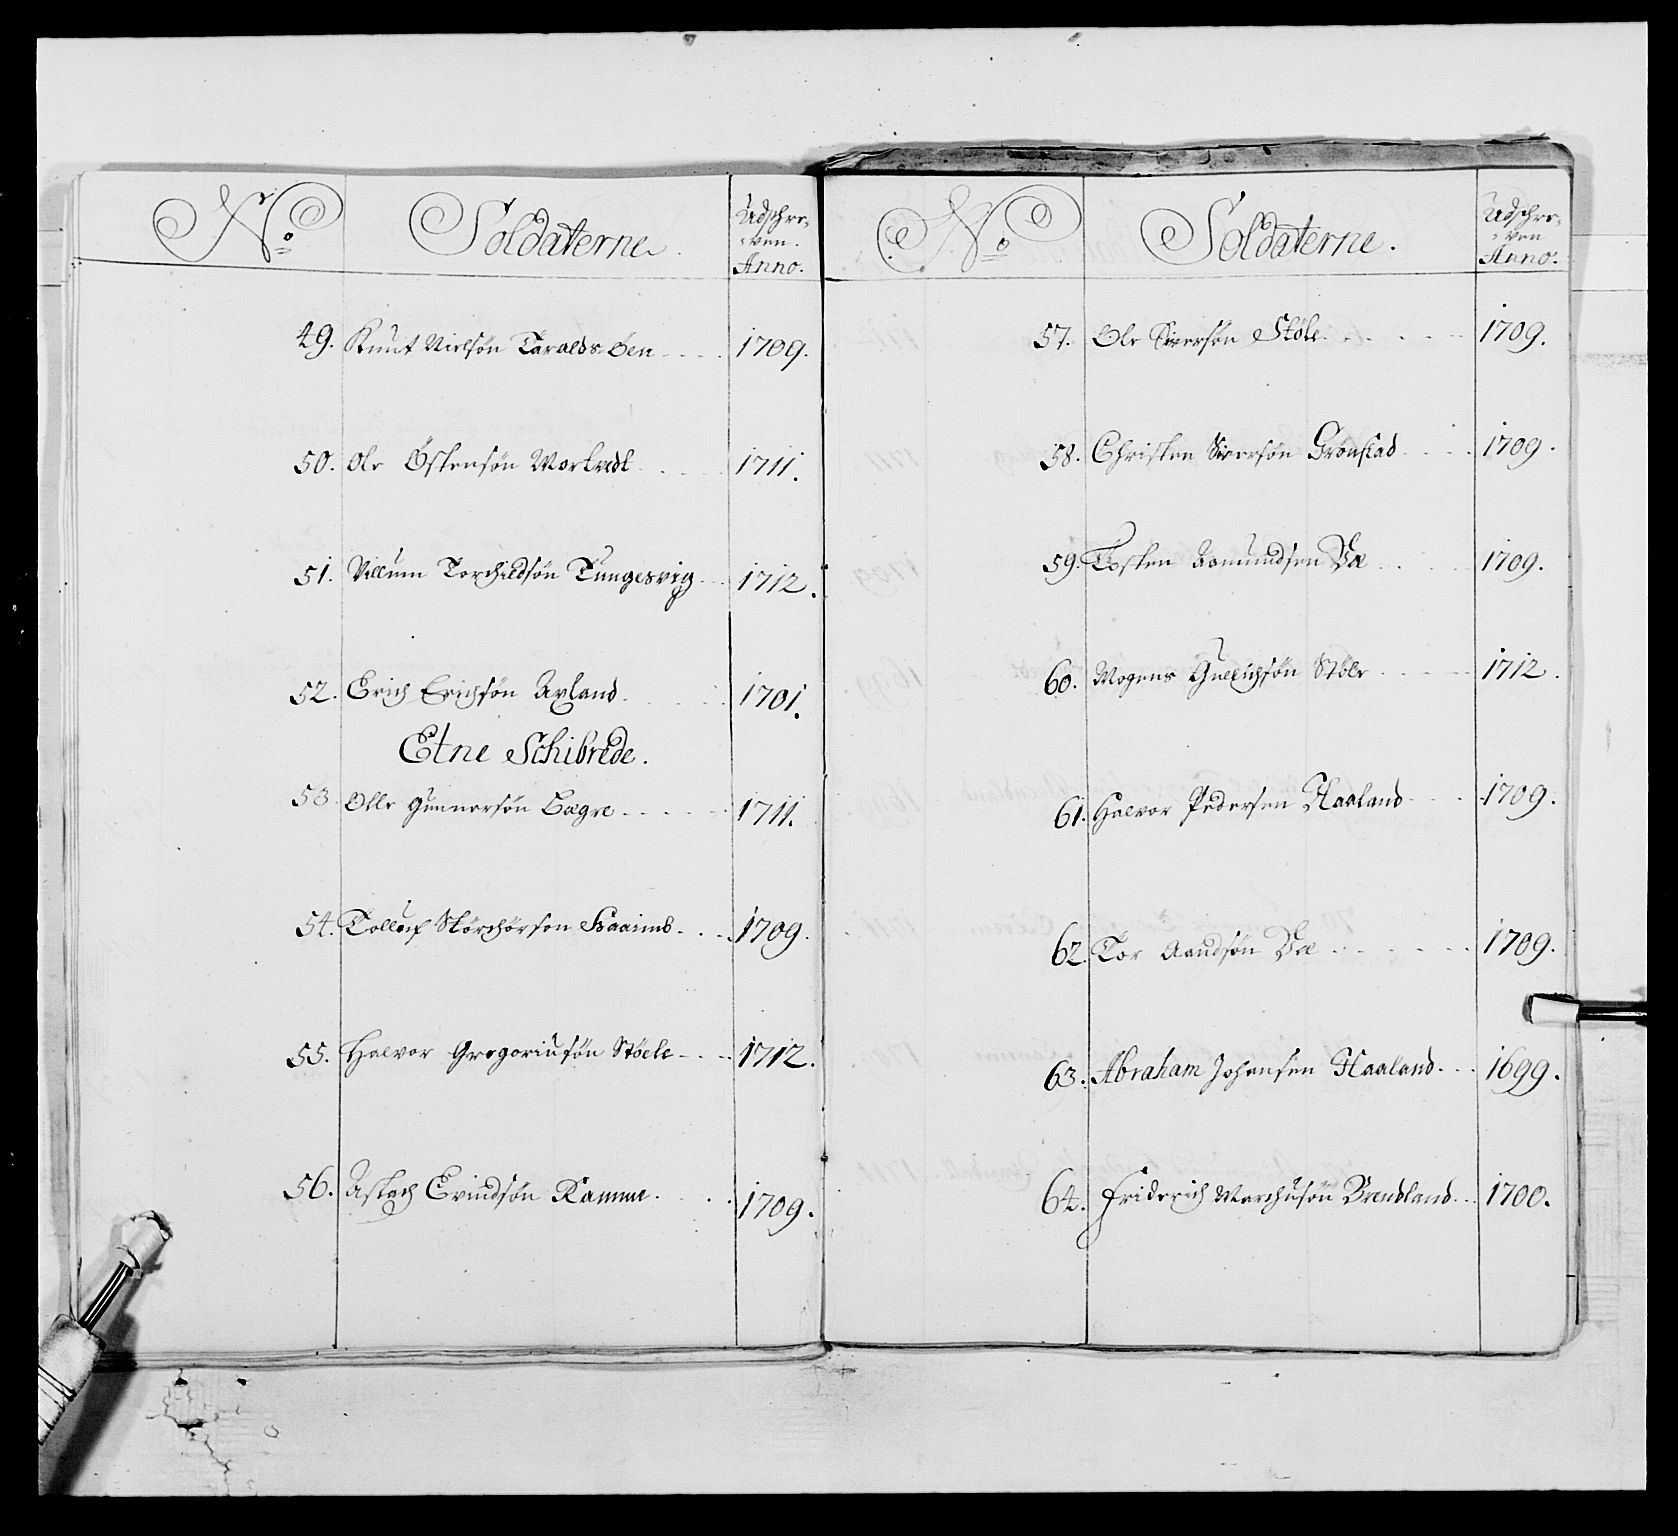 No Soldaterne. Udschre-
-ven.
Anno.
49. Knut Nielsøn Taralds Øen 1709.
50. Ole Østensøn Mortvedt 1711.
51. Villum Torchildsøn Tungesvig 1712.
52. Erich Erichsøn Axland 1701.
Etne Schibrede.
53 Olle Gunnersøn Bagre 1711.
54. Tolluf 1709.
55. Halvor Gregoriusøn Støele 1712.
56. Aslach Evindsøn Ramme. 1709.
No Soldaterne. Udschre-
-ven
Anno.
57. Ole Siversøn Støle 1709.
58. Christen Siversøn Grønstad 1709.
59. Tosten Aamundsen Væ 1709.
60. Mogens Gullichsøn Støle 1712.
61. Halvor Pedersen Haaland 1709.
62. Tor Aandsøn Væ 1709.
63. Abraham Johansen Haaland 1699.
64. Friderich Marchusøn Brendland 1700.